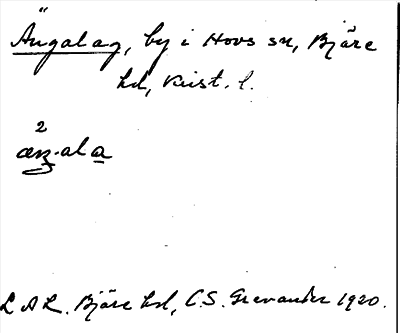 Ängalag, by i Hovs sn, Bjäre
hd, Krist. l.
2
æŋ·ala
L A L. Bjäre hd, C.S. Grevander 1920.